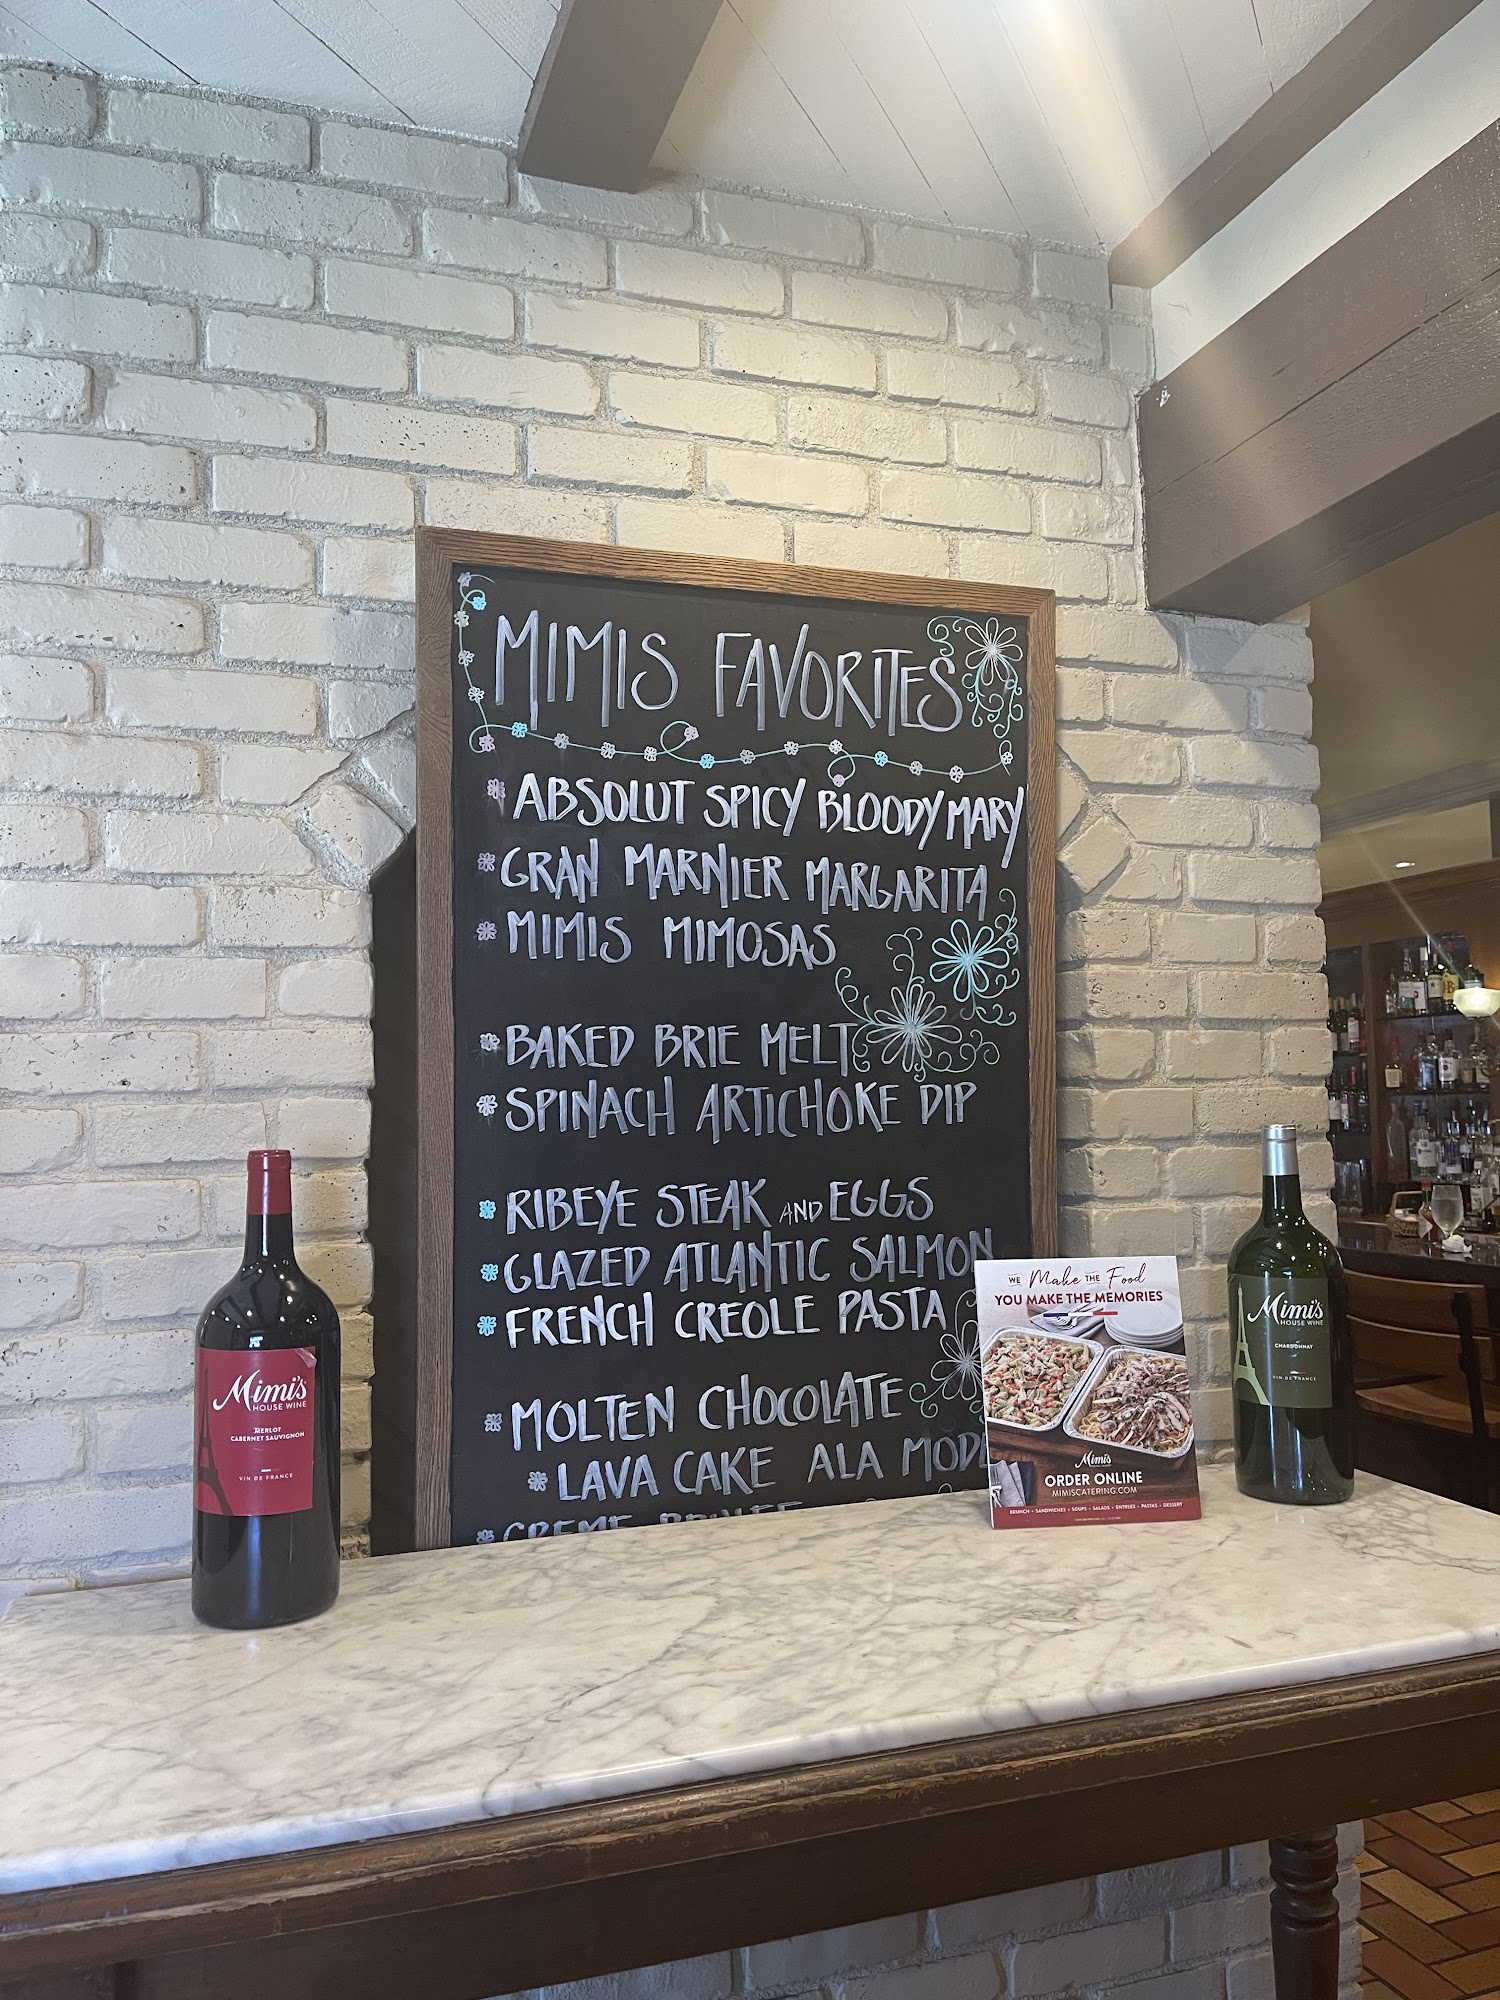 MIMIS FAVORITES
ABSOLUT SPICY BLOODY MARY
GRAN MARNIER MARGARITA
MIMIS MIMOSAS
BAKED BRIE MELT
SPINACH ARTICHOKE DIP
RIBEYE STEAK AND EGGS
GLAZED ATLANTIC SALMON
FRENCH CREOLE PASTA
MOLTEN CHOCOLATE
LAVA CAKE ALA MODE
CREME BRULEE
Mimi's
HOUSE WINE
MERLOT
CABERNET SAUVIGNON
VIN DE FRANCE
WE Make THE Food
YOU MAKE THE MEMORIES
Mimi's
ORDER ONLINE
MIMISCATERING.COM
BRUNCH • SANDWICHES • SOUPS • SALADS • ENTREES • PASTAS • DESSERT
Mimi's
HOUSE WINE
CHARDONNAY
VIN DE FRANCE